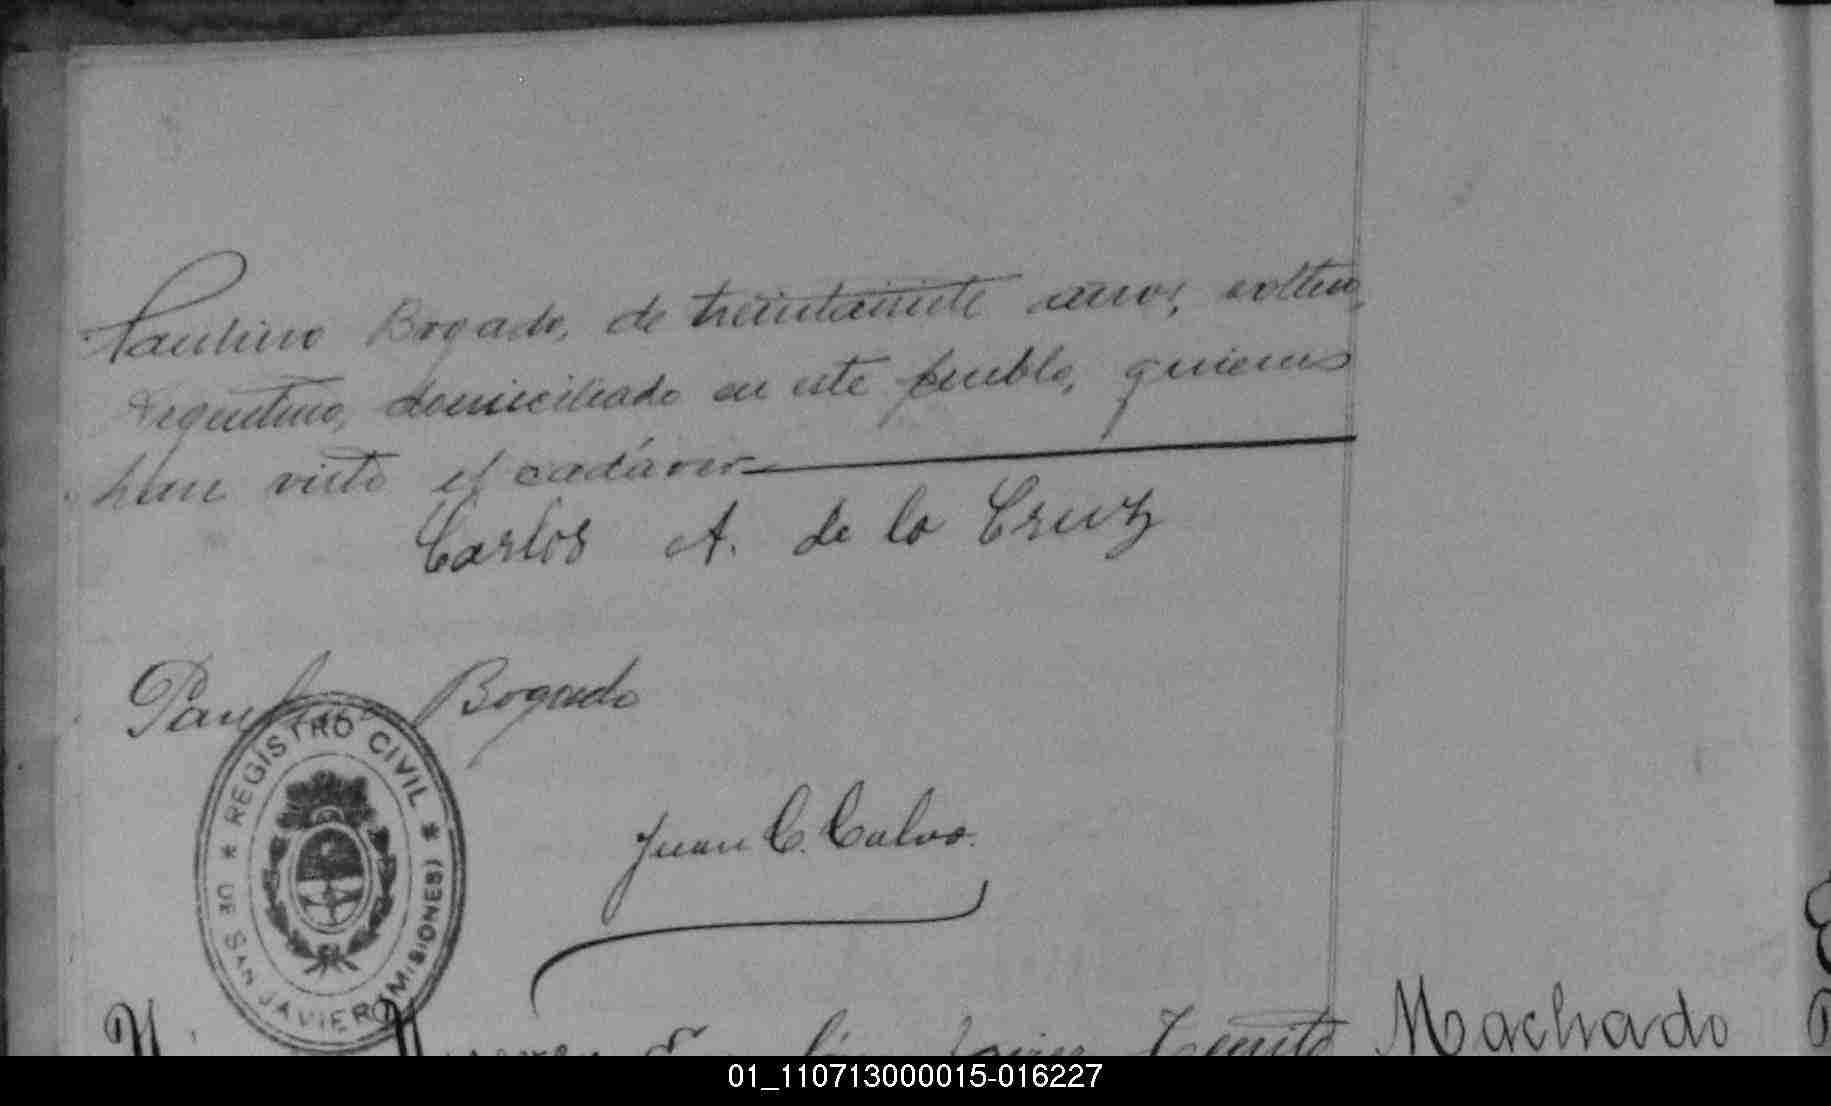 Paulino Bogado, de treintaisiete años, soltero,
argentino, domiciliado en este pueblo, quienes
han visto el cadáver
Carlos A. de la Cruz
Paulino Bogado
REGISTRO CIVIL
DE SAN JAVIER (MISIONES)
Juan C. Calvo.
Machado
01_110713000015-016227